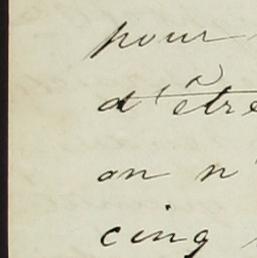 pour
d'être
on n'
cinq